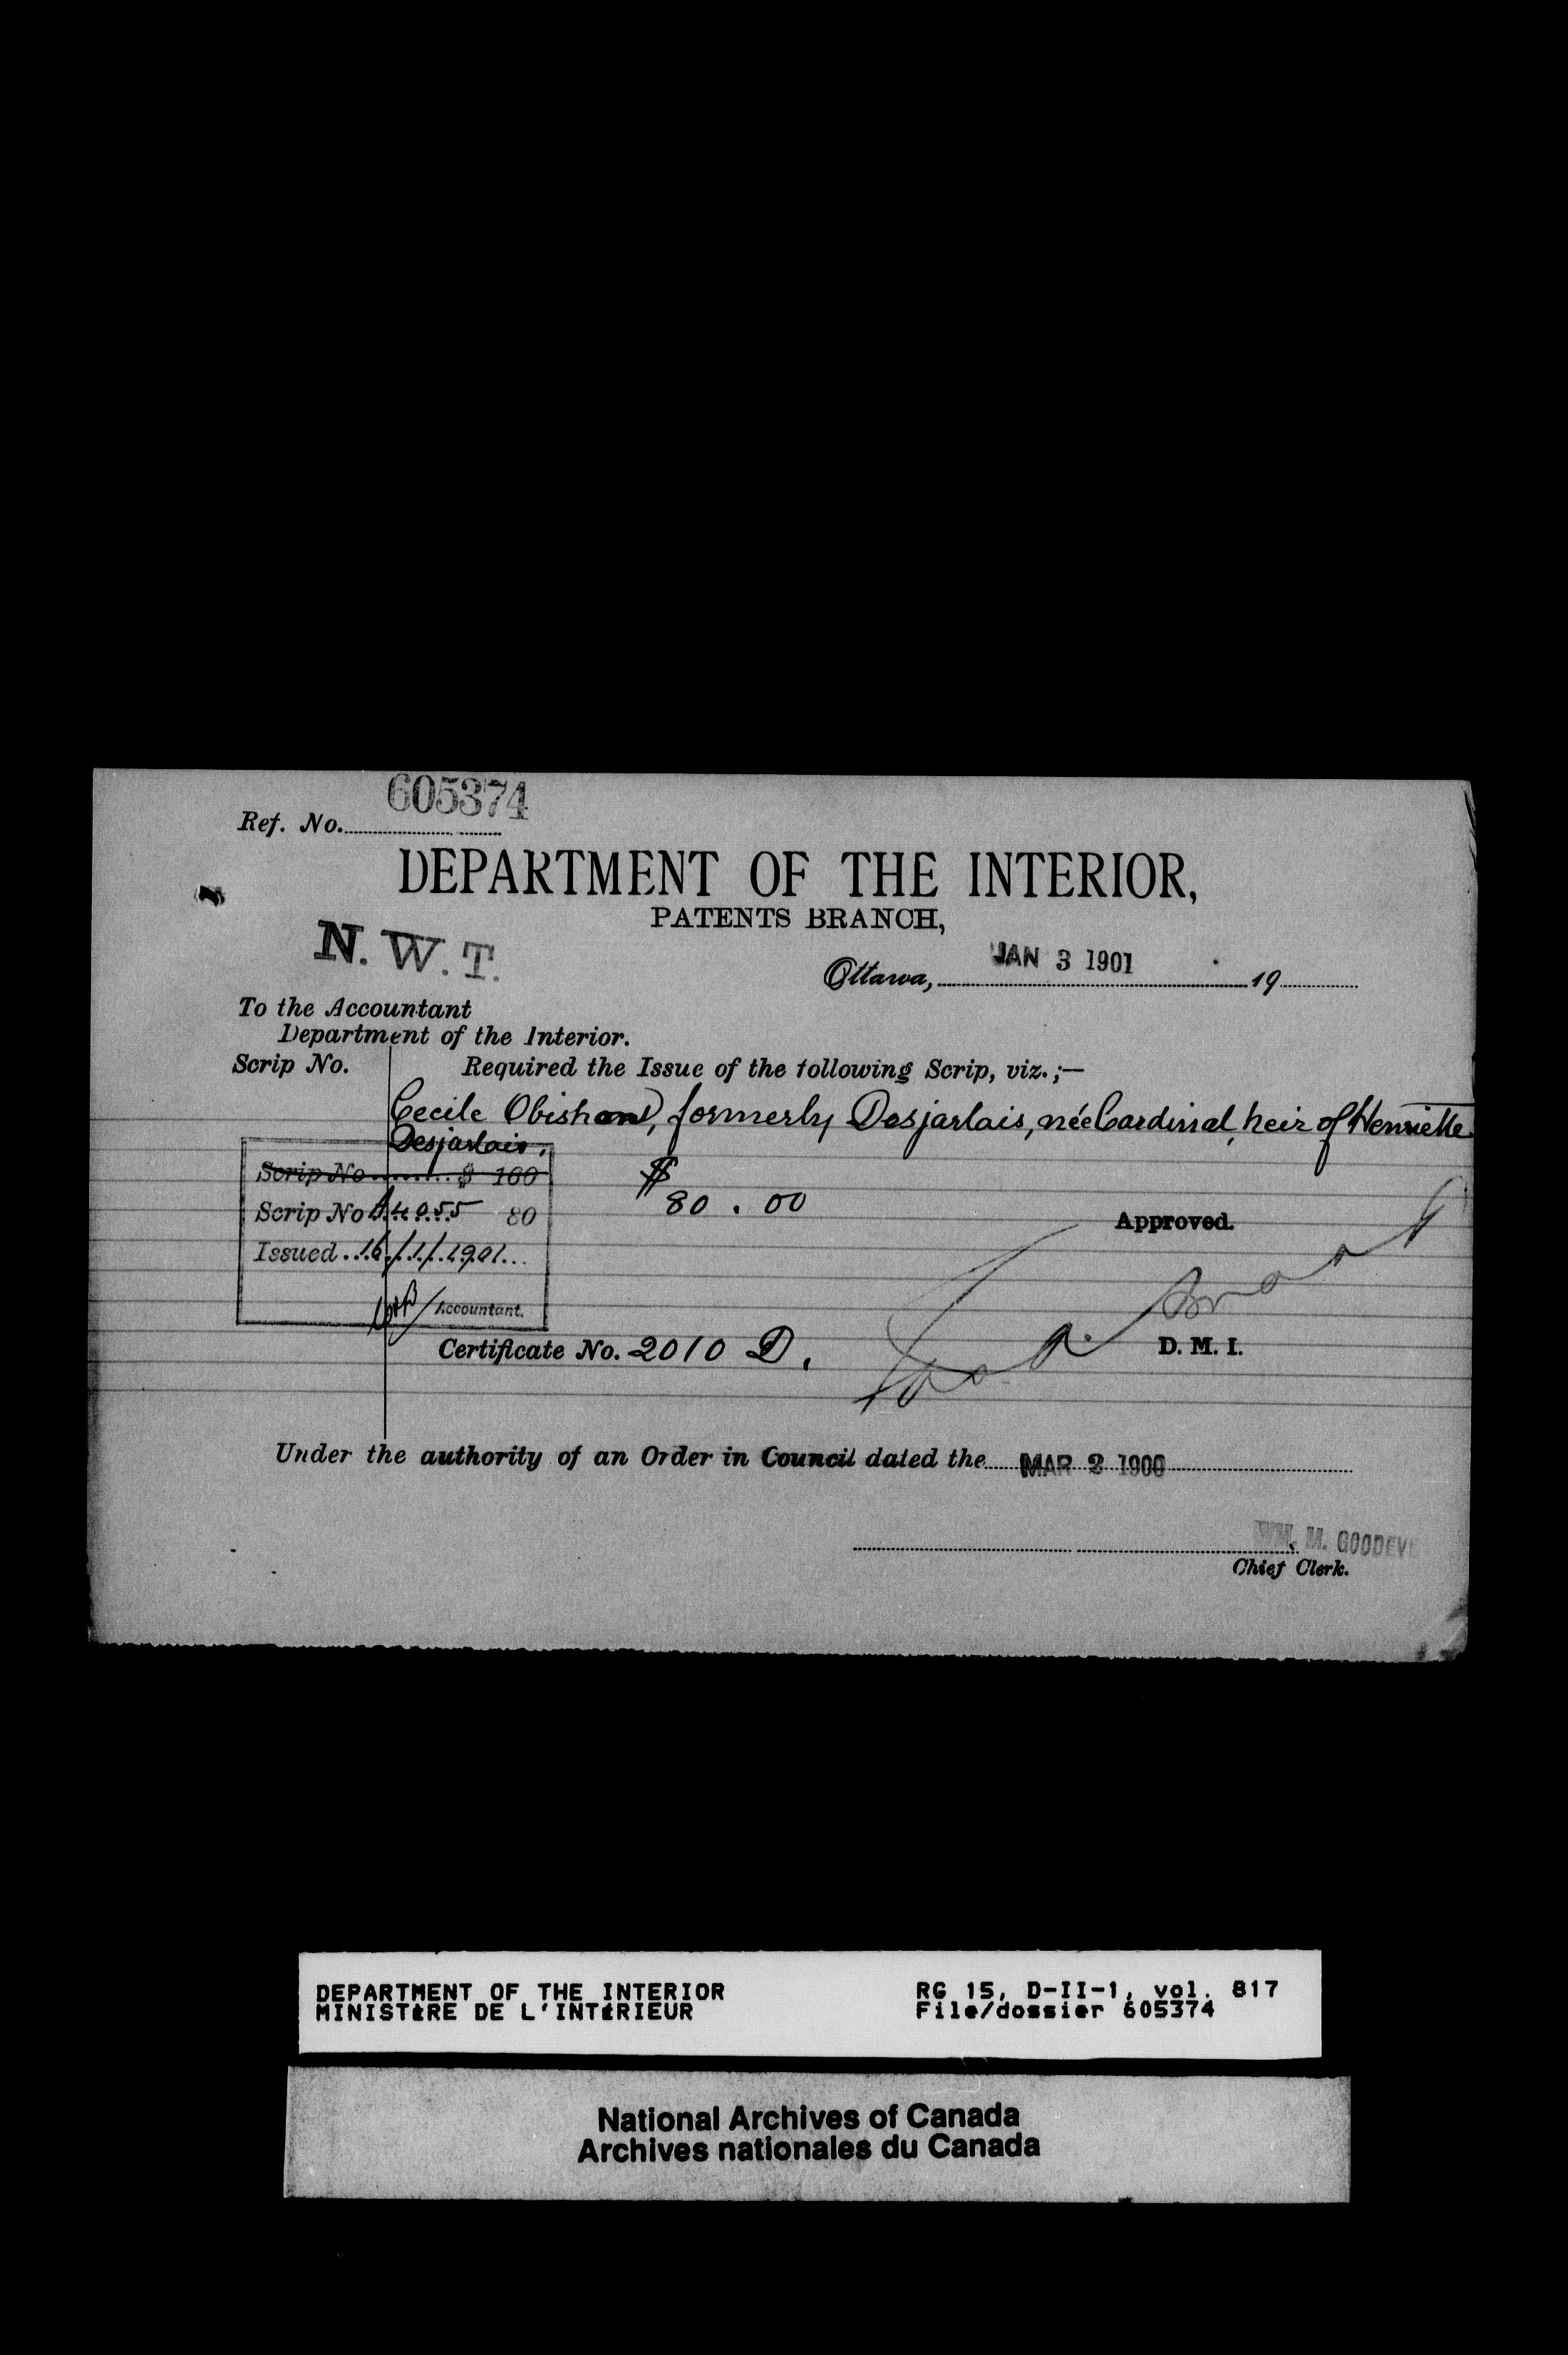 605374
Ref. No.
DEPARTMENT OF THE INTERIOR,
PATENTS BRANCH,
N. W. T.
Ottawa, JAN 3 1901 19
To the Accountant
Department of the Interior.
Scrip No. Required the Issue of the following Scrip, viz.;—
Cecile Obishan, formerly Desjarlais, née Cardinal, heir of Henriette
Desjarlais.
Scrip No. $ 160
$
Scrip No 4055 80
80.00
Approved.
Issued 16/1/1901
Accountant.
Certificate No. 2010 D.
D. M. I.
Under the authority of an Order in Council dated the MAR 2 1900
WM. M. GOODEVE
Chief Clerk.
DEPARTMENT OF THE INTERIOR RG 15, D-II-1, vol. 817
MINISTÈRE DE L'INTÉRIEUR File/dossier 605374
National Archives of Canada
Archives nationales du Canada